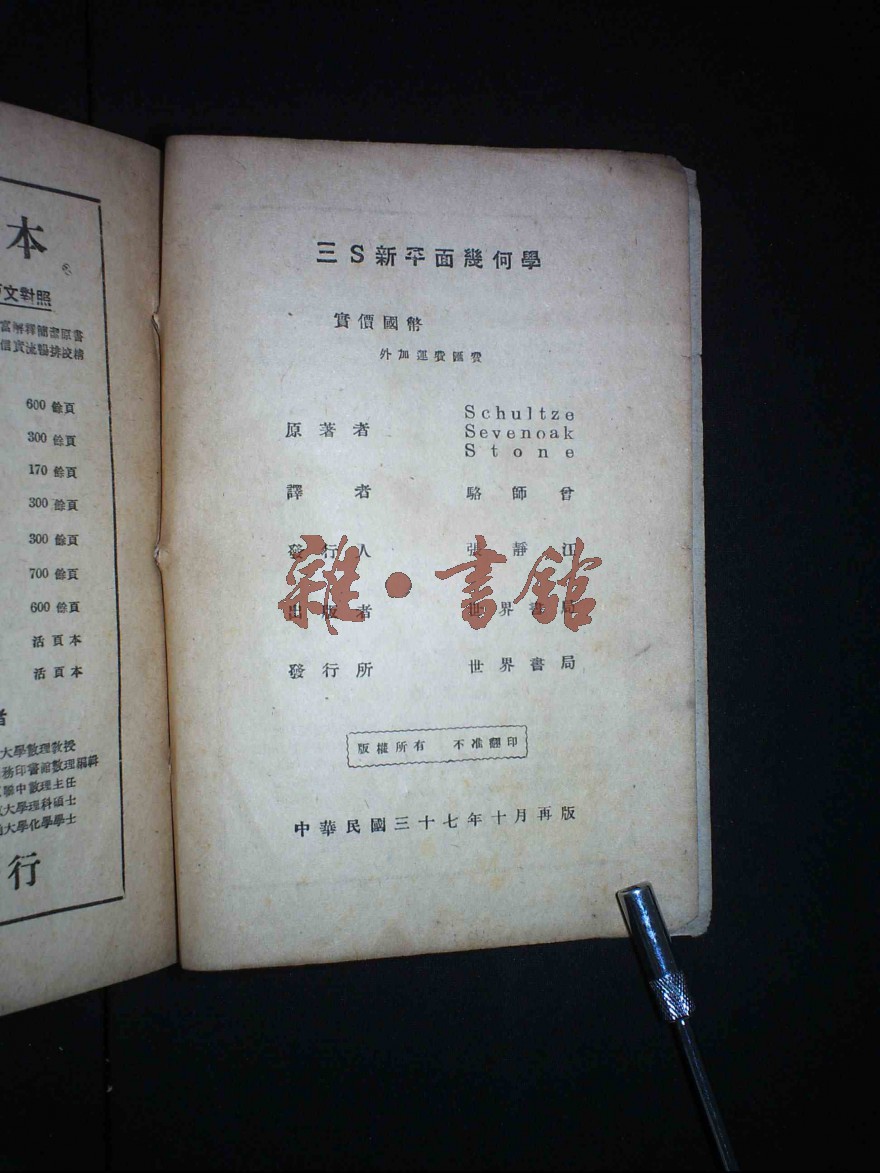 本
文對照
600 餘頁
300 餘頁
170 餘頁
300 餘頁
300 餘頁
700 餘頁
600 餘頁
活頁本
活頁本
者
大學數理敎授
務印書館數理編輯
中數理主任
大學理科碩士
大學化學學士
行
三S新平面幾何學
實價國幣
外加運費匯費
原著者 Schultze
Sevenoak
Stone
譯者 駱師曾
發行人 張靜江
雜·書館
出版者 世界書局
發行所 世界書局
版權所有 不准翻印
中華民國三十七年十月再版